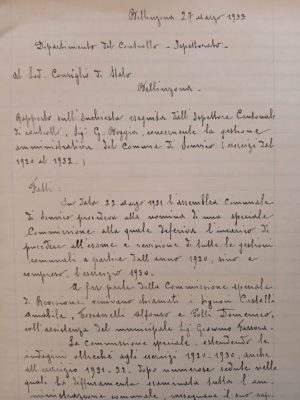 Bellinzona 27 marzo 1933
Dipartimento del Controllo - Ispettorato -
Al Lod. Consiglio di Stato
Bellinzona.
Rapporto sull'Inchiesta eseguita dall'Ispettore Cantonale
di controllo, Sig. G. Poggia, concernente la gestione
amministrativa del Comune di Sonvico (esercizi dal
1920 al 1932.)
Fatti:
In data 22 marzo 1931 l'assemblea comunale
di Sonvico procedeva alla nomina di una speciale
Commissione alla quale deferiva l'incarico di
procedere all'esame e revisione di tutte le gestioni
comunali a partire dall'anno 1920, sino e
compreso, l'esercizio 1930.
A far parte della Commissione speciale
di Revisione venivano chiamati i Signori
Amabile, Alfonso e Domenico,
coll'assistenza del municipale Sig. Giacomo
La Commissione speciale, estendendo le
indagini oltreché agli esercizi 1920-1930, anche
all'esercizio 1931-32, dopo numerose sedute nelle
quali fu diffusamente esaminata tutta l'am-
ministrazione comunale, rassegnava il suo rap-